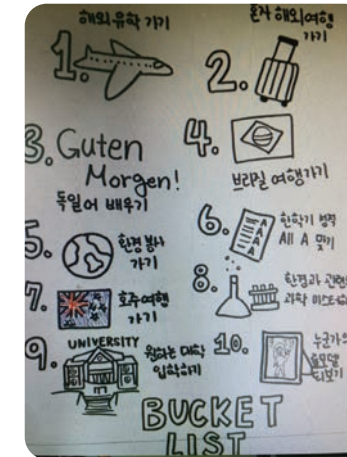 해외 유학 가기
1.
혼자 해외여행
가기
2.
3. Guten
Morgen!
독일어 배우기
4.
브라질 여행가기
5.
환경 봉사
가기
6.
한학기 성적
All A 맞기
A
A
A
A
7.
호주여행
가기
8.
환경과 관련
과학
9.
UNIVERSITY
원하는 대학
입학하기
10.
누군가의
BUCKET
LIST